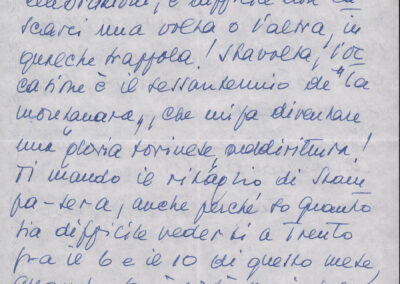 è difficile non ca
scarci una volta o l'altra, in
qualche trappola! Stavolta, l'oc
casione è il sessantennio de "La
montanara", che mi fa diventare
una "gloria torinese, addirittura!
Ti mando il ritaglio di Stam
pa-sera, anche perché so quanto
sia difficile vederti a Trento
fra il 6 e il 10 di questo mese,